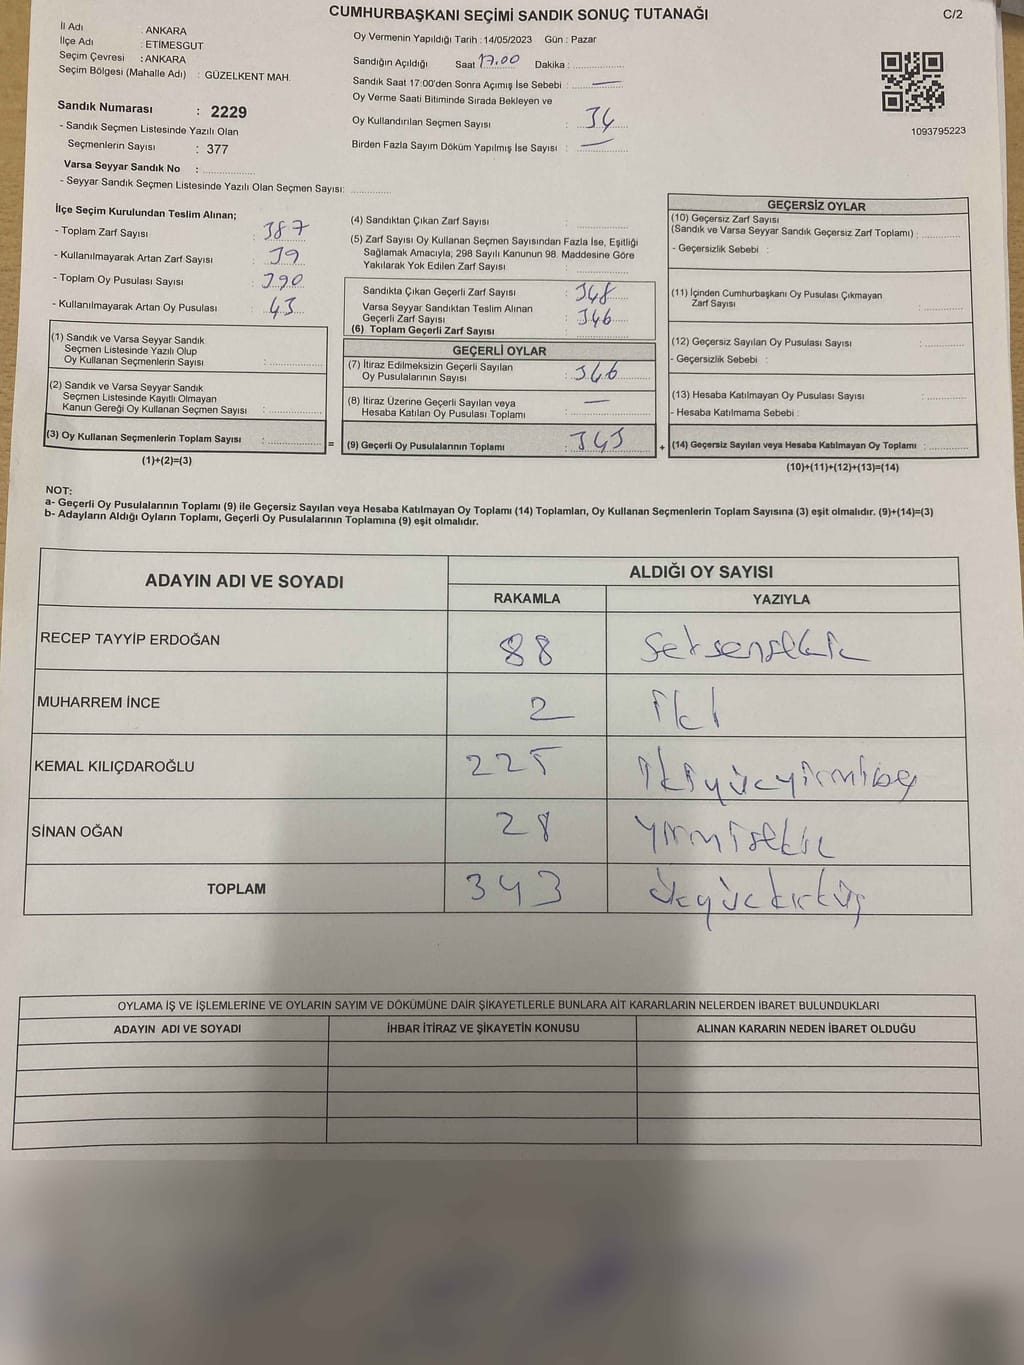 CUMHURBAŞKANI SEÇİMİ SANDIK SONUÇ TUTANAĞI
C/2
İl Adı : ANKARA
İlçe Adı : ETİMESGUT
Seçim Çevresi : ANKARA
Seçim Bölgesi (Mahalle Adı) : GÜZELKENT MAH.
Sandık Numarası : 2229
- Sandık Seçmen Listesinde Yazılı Olan
Seçmenlerin Sayısı : 377
Varsa Seyyar Sandık No :
- Seyyar Sandık Seçmen Listesinde Yazılı Olan Seçmen Sayısı:
Oy Vermenin Yapıldığı Tarih : 14/05/2023 Gün : Pazar
Sandığın Açıldığı Saat 17.00 Dakika :
Sandık Saat 17:00'den Sonra Açımış İse Sebebi : —
Oy Verme Saati Bitiminde Sırada Bekleyen ve
Oy Kullandırılan Seçmen Sayısı : 34
Birden Fazla Sayım Döküm Yapılmış İse Sayısı : —
1093795223
İlçe Seçim Kurulundan Teslim Alınan;
- Toplam Zarf Sayısı : 387
- Kullanılmayarak Artan Zarf Sayısı : 39
- Toplam Oy Pusulası Sayısı : 390
- Kullanılmayarak Artan Oy Pusulası : 43
(1) Sandık ve Varsa Seyyar Sandık
Seçmen Listesinde Yazılı Olup
Oy Kullanan Seçmenlerin Sayısı :
(2) Sandık ve Varsa Seyyar Sandık
Seçmen Listesinde Kayıtlı Olmayan
Kanun Gereği Oy Kullanan Seçmen Sayısı :
(3) Oy Kullanan Seçmenlerin Toplam Sayısı : =
(1)+(2)=(3)
(4) Sandıktan Çıkan Zarf Sayısı :
(5) Zarf Sayısı Oy Kullanan Seçmen Sayısından Fazla İse, Eşitliği
Sağlamak Amacıyla, 298 Sayılı Kanunun 98. Maddesine Göre
Yakılarak Yok Edilen Zarf Sayısı :
Sandıkta Çıkan Geçerli Zarf Sayısı : 348
Varsa Seyyar Sandıktan Teslim Alınan
Geçerli Zarf Sayısı : 346
(6) Toplam Geçerli Zarf Sayısı :
GEÇERLİ OYLAR
(7) İtiraz Edilmeksizin Geçerli Sayılan
Oy Pusulalarının Sayısı : 346
(8) İtiraz Üzerine Geçerli Sayılan veya
Hesaba Katılan Oy Pusulası Toplamı : —
(9) Geçerli Oy Pusulalarının Toplamı : 343 +
GEÇERSİZ OYLAR
(10) Geçersiz Zarf Sayısı
(Sandık ve Varsa Seyyar Sandık Geçersiz Zarf Toplamı) :
- Geçersizlik Sebebi :
(11) İçinden Cumhurbaşkanı Oy Pusulası Çıkmayan
Zarf Sayısı :
(12) Geçersiz Sayılan Oy Pusulası Sayısı :
- Geçersizlik Sebebi :
(13) Hesaba Katılmayan Oy Pusulası Sayısı :
- Hesaba Katılmama Sebebi :
(14) Geçersiz Sayılan veya Hesaba Katılmayan Oy Toplamı :
(10)+(11)+(12)+(13)=(14)
NOT:
a- Geçerli Oy Pusulalarının Toplamı (9) ile Geçersiz Sayılan veya Hesaba Katılmayan Oy Toplamı (14) Toplamları, Oy Kullanan Seçmenlerin Toplam Sayısına (3) eşit olmalıdır. (9)+(14)=(3)
b- Adayların Aldığı Oyların Toplamı, Geçerli Oy Pusulalarının Toplamına (9) eşit olmalıdır.
ADAYIN ADI VE SOYADI
ALDIĞI OY SAYISI
RAKAMLA YAZIYLA
RECEP TAYYİP ERDOĞAN 88 Seksensekiz
MUHARREM İNCE 2 iki
KEMAL KILIÇDAROĞLU 225 ikiyüzyirmibeş
SİNAN OĞAN 28 yirmisekiz
TOPLAM 343 üçyüzkırküç
OYLAMA İŞ VE İŞLEMLERİNE VE OYLARIN SAYIM VE DÖKÜMÜNE DAİR ŞİKAYETLERLE BUNLARA AİT KARARLARIN NELERDEN İBARET BULUNDUKLARI
ADAYIN ADI VE SOYADI İHBAR İTİRAZ VE ŞİKAYETİN KONUSU ALINAN KARARIN NEDEN İBARET OLDUĞU